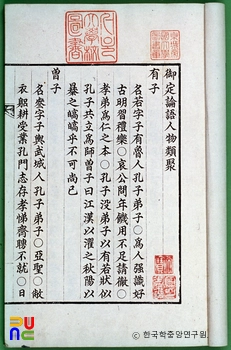 御定論語人物類聚
有子
名若字子有魯人孔子弟子○爲人强識好
古明習禮樂○哀公問年饑用不足請徹○
孝弟爲仁之本○孔子没弟子以有若狀似
孔子共立爲師曾子曰江漢以濯之秋陽以
暴之皜皜乎不可尚已
曾子
名參字子輿武城人孔子弟子○亞聖○敝
衣躬耕受業孔門志存孝悌齊聘不就○日
ⓒ 한국학중앙연구원